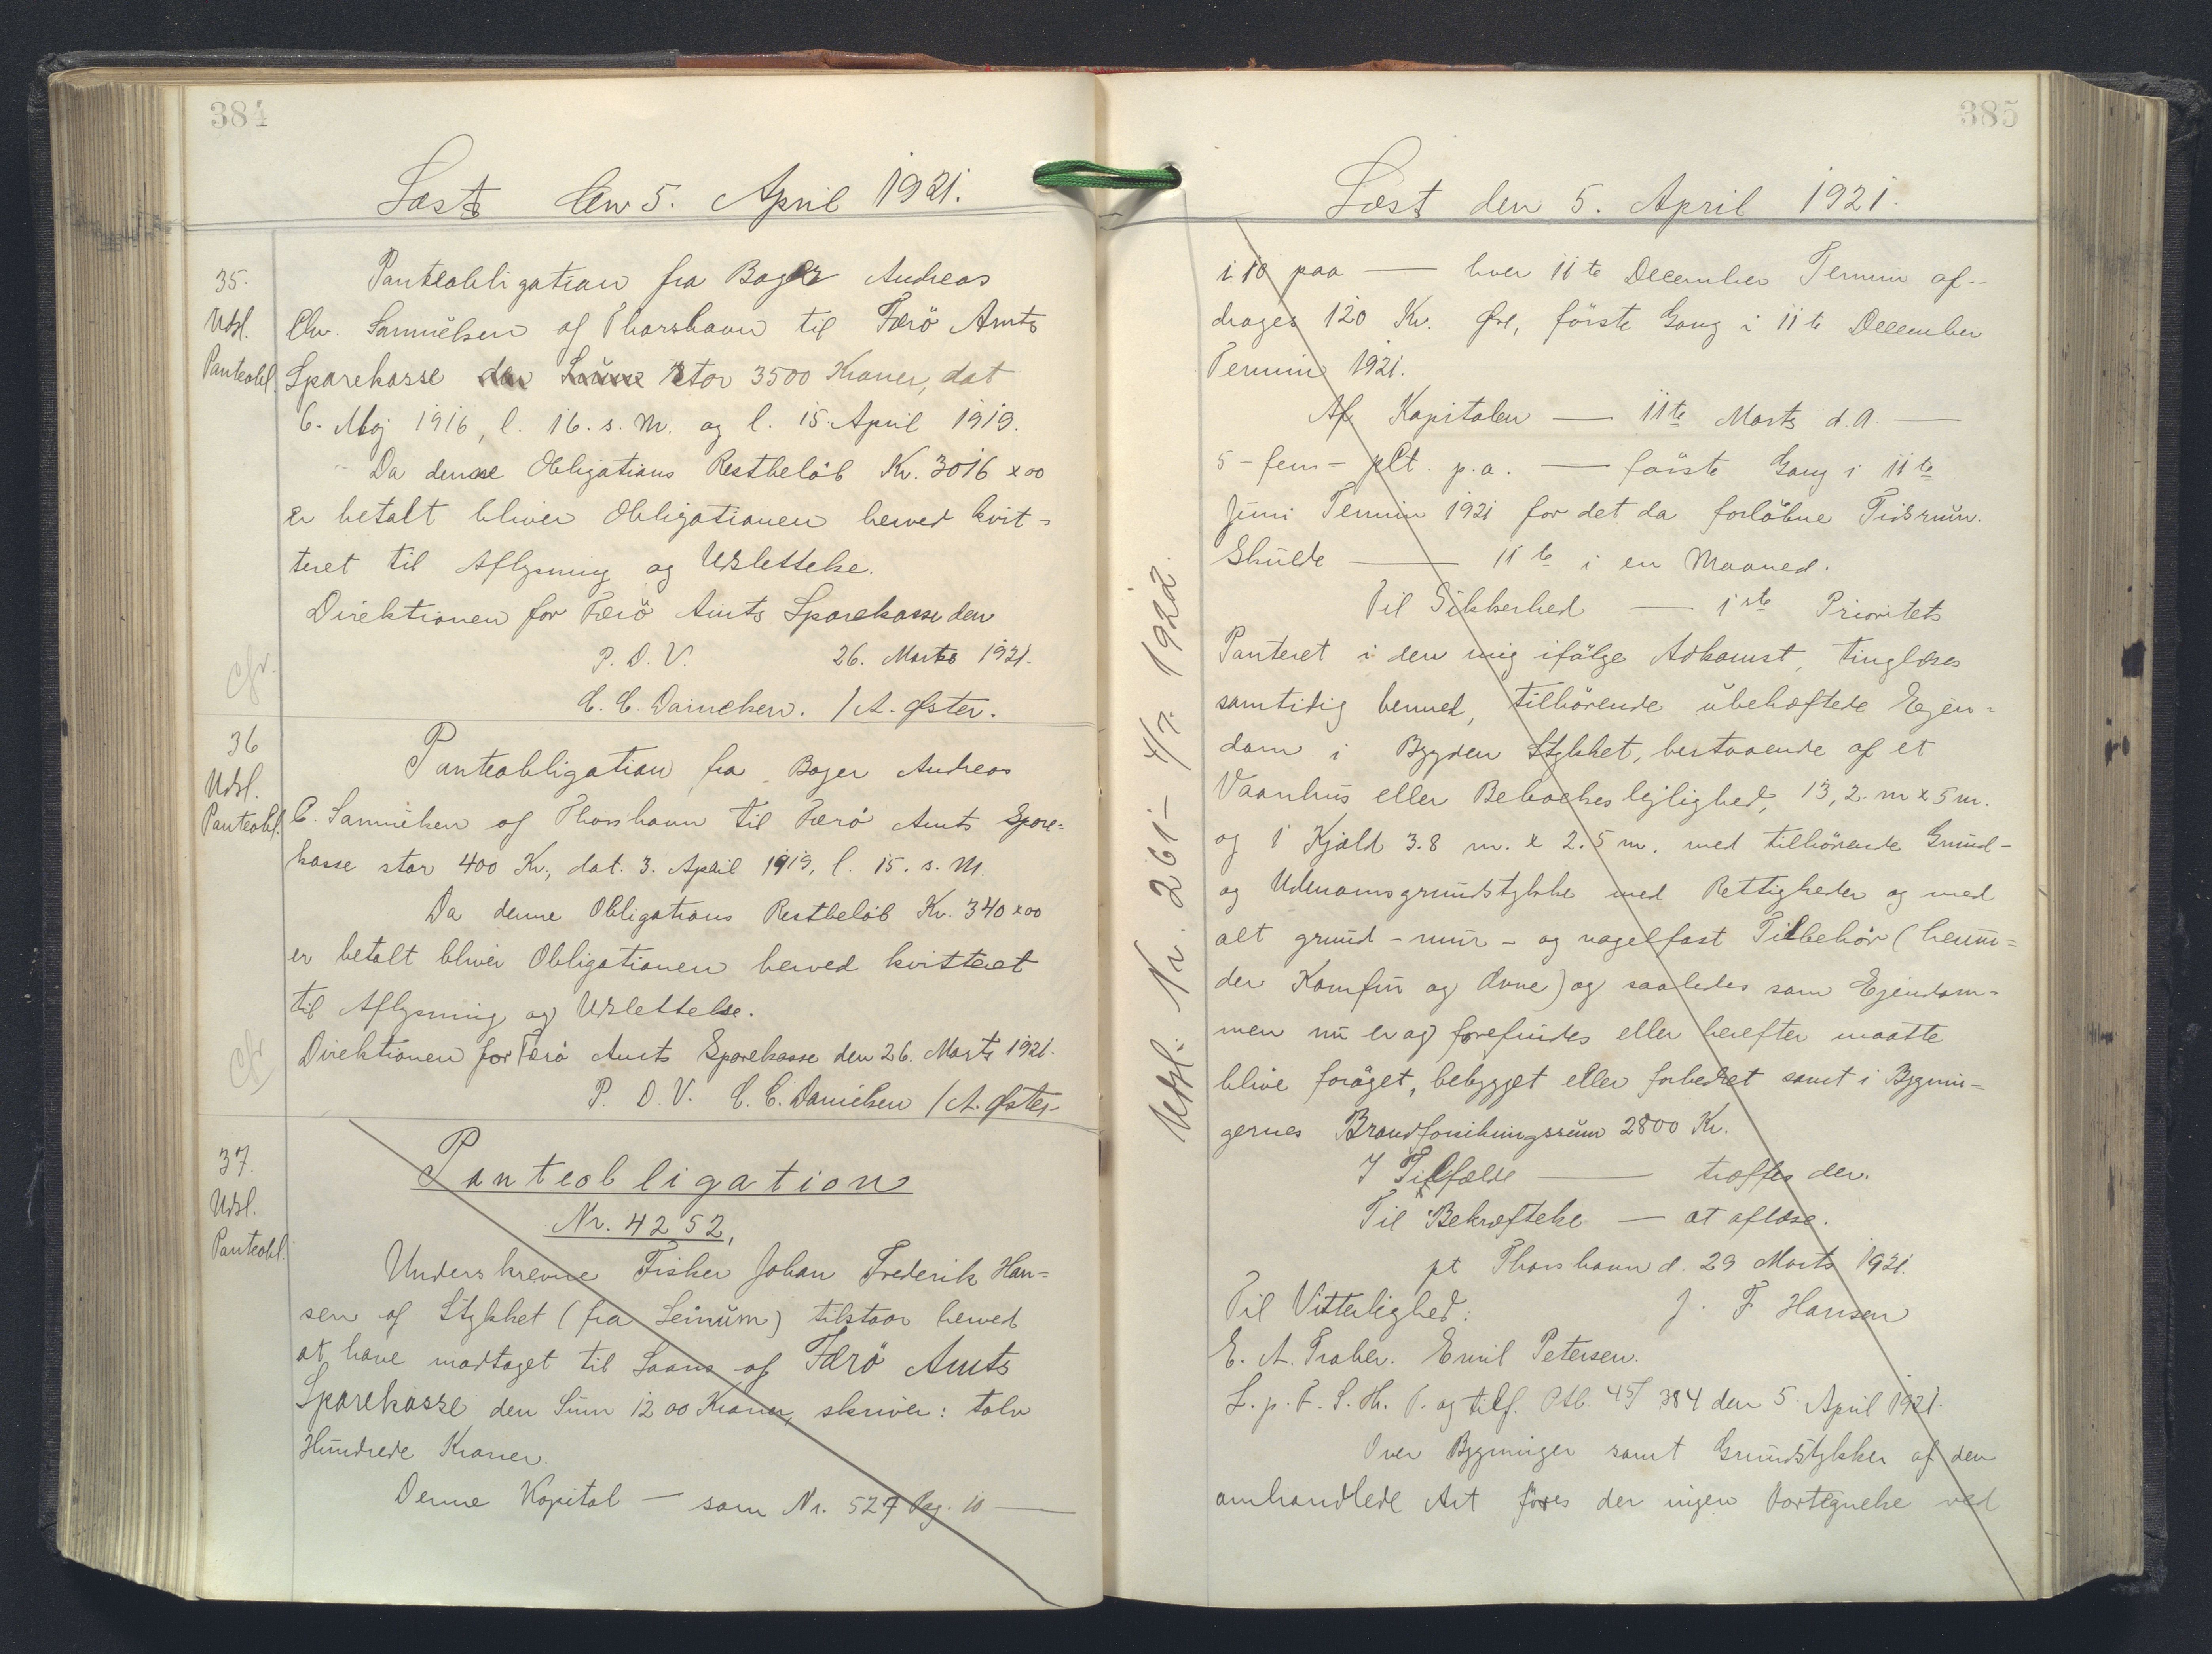 384
Læst den 5. April 1921.
35.
Udsl.
Panteobl.
Panteobligation fra Bager Andreas
Chr. Samuelsen af Thorshavn til Færö Amts
Sparekasse den Summa stor 3500 Kroner, dat
6. Maj 1916, l. 16. s. M. og l. 15. April 1919.
Da denne Obligations Restbelöb Kr. 3016 x 00
er betalt bliver Obligationen herved kvit=
teret til Aflysning og Udslettelse.
Direktionen for Færö Amts Sparekasse den
P. D. V. 26. Marts 1921.
C. C. Danielsen. / A. Øster.
cfr.
36
Udsl.
Panteobl.
Panteobligation fra Bager Andreas
C. Samuelsen af Thorshavn til Færö Amts Spare=
kasse stor 400 Kr., dat. 3. April 1919, l. 15. s. M.
Da denne Obligations Restbelöb Kr. 340 x 00
er betalt bliver Obligationen herved kvitteret
til Aflysning og Udslettelse.
Direktionen for Færö Amts Sparekasse den 26. Marts 1921.
P. D. V. C. C. Danielsen / A. Øster.
cfr
37.
Udsl.
Panteobl.
Panteobligation
Nr. 4252,
Underskrevne Fisker Johan Frederik Han=
sen af Stykket (fra Leinum) tilstaar herved
at have modtaget til Laans af Færö Amts
Sparekasse den Sum 1200 Kroner, skriver: tolv
Hundrede Kroner.
Denne Kapital — som Nr. 527 Pag. 10 —
385
Læst den 5. April 1921.
i 10 paa — hver 11te December Termin af-
drages 120 Kr. Øre, förste Gang i 11te December
Termin 1921.
Af Kapitalen — 11te Marts d. A. —
5 - fem - pCt. p. a. — förste Gang i 11te
Juni Termin 1921 for det da forlöbne Tidsrum.
Skulde — 11te i en Maaned.
Til Sikkerhed — 1ste Prioritets
Panteret i den mig ifölge Adkomst, tinglæses
samtidig hermed, tilhörende ubehæftede Ejen=
dom i Bygden Stykket, bestaaende af et
Vaanhus eller Beboelseslejlighed, 13,2 m x 5 m.
og 1 Kjald 3.8 m. x 2.5 m. med tilhörende Grund-
og Udenomsgrundstykke med Rettigheder og med
alt grund - mur - og nagelfast Tilbehör (herun=
der Komfur og Ovne) og saaledes som Ejendom=
men nu er og forefindes eller herefter maatte
blive foröget, bebygget eller forbedret samt i Bygnin=
gernes Brandforsikringssum 2800 Kr.
I Tilfælde — træffes der.
Til Bekræftelse — at aflæse.
pt Thorshavn d. 29 Marts 1921.
Til Vitterlighed: J. F. Hansen
E. A. Emil Petersen.
L. p. T. S. Th. P. og tilf. 384 den 5. April 1921.
Over Bygninger samt Grundstykker af den
omhandlede Art föres der ingen Fortegnelse ved
Udsl. Nr. 261 - 4/7. 1922.